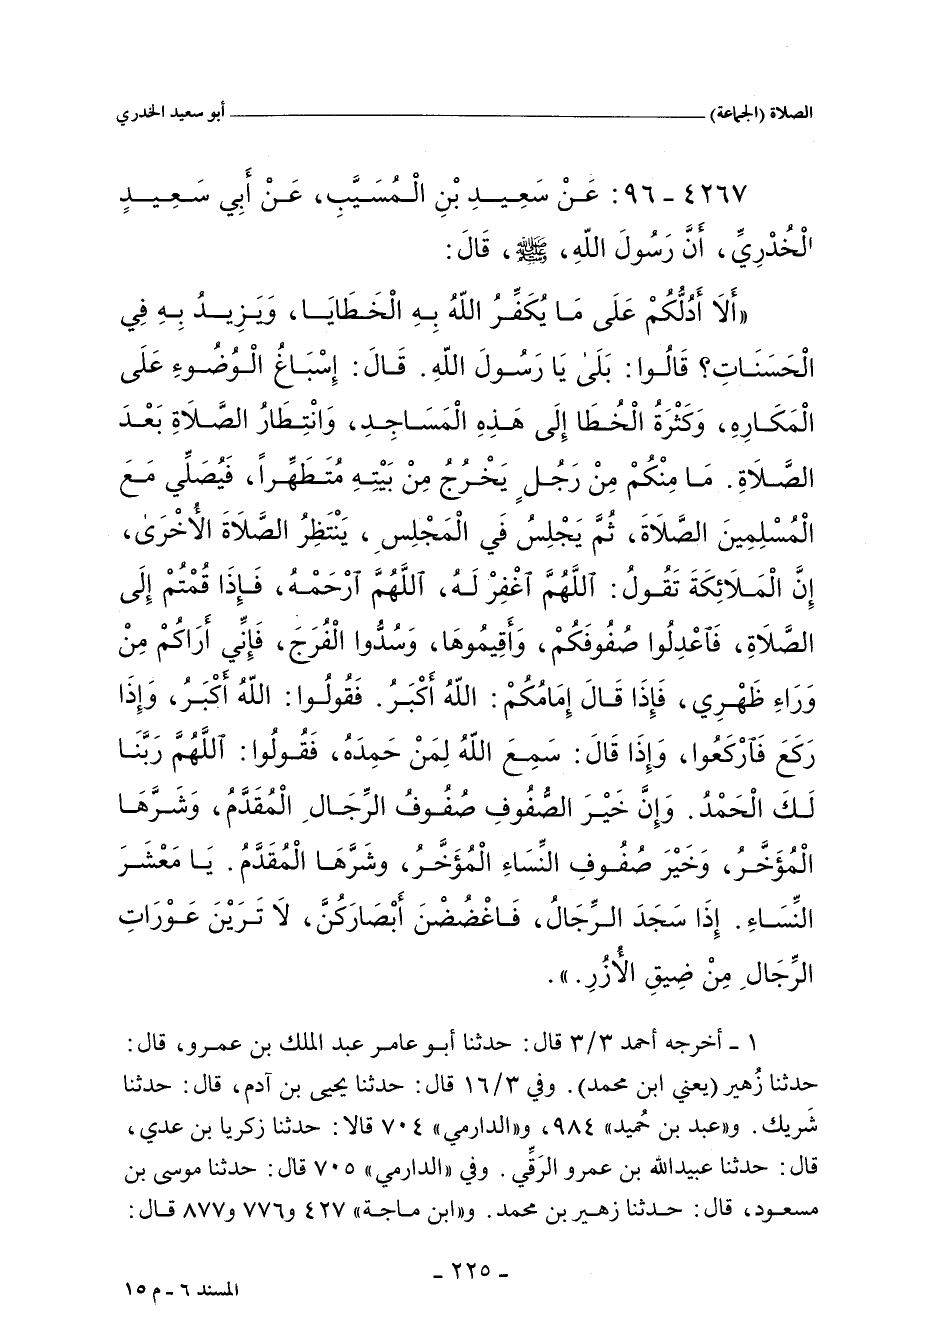 الصلاة (الجماعة) ــــــــــــــــــــ أبو سعيد الخدري
٤٢٦٧ - ٩٦: عَنْ سَعِيدِ بْنِ الْمُسَيَّبِ، عَنْ أَبِي سَعِيدٍ
الْخُدْرِيِّ، أَنَّ رَسُولَ اللهِ، ﷺ، قَالَ:
«أَلَا أَدُلُّكُمْ عَلَى مَا يُكَفِّرُ اللهُ بِهِ الْخَطَايَا، وَيَزِيدُ بِهِ فِي
الْحَسَنَاتِ؟ قَالُوا: بَلَىٰ يَا رَسُولَ اللهِ. قَالَ: إِسْبَاغُ الْوُضُوءِ عَلَى
الْمَكَارِهِ، وَكَثْرَةُ الْخُطَا إِلَى هَذِهِ الْمَسَاجِدِ، وَانْتِظَارُ الصَّلَاةِ بَعْدَ
الصَّلَاةِ. مَا مِنْكُمْ مِنْ رَجُلٍ يَخْرُجُ مِنْ بَيْتِهِ مُتَطَهِّراً، فَيُصَلِّي مَعَ
الْمُسْلِمِينَ الصَّلَاةَ، ثُمَّ يَجْلِسُ فِي الْمَجْلِسِ، يَنْتَظِرُ الصَّلَاةَ الْأُخْرَىٰ،
إِنَّ الْمَلَائِكَةَ تَقُولُ: ٱللَّهُمَّ ٱغْفِرْ لَهُ، ٱللَّهُمَّ ٱرْحَمْهُ، فَإِذَا قُمْتُمْ إِلَى
الصَّلَاةِ، فَٱعْدِلُوا صُفُوفَكُمْ، وَأَقِيمُوهَا، وَسُدُّوا الْفُرَجَ، فَإِنِّي أَرَاكُمْ مِنْ
وَرَاءِ ظَهْرِي، فَإِذَا قَالَ إِمَامُكُمْ: اللهُ أَكْبَرُ. فَقُولُوا: اللهُ أَكْبَرُ، وَإِذَا
رَكَعَ فَٱرْكَعُوا، وَإِذَا قَالَ: سَمِعَ اللهُ لِمَنْ حَمِدَهُ، فَقُولُوا: ٱللَّهُمَّ رَبَّنَا
لَكَ الْحَمْدُ. وَإِنَّ خَيْرَ الصُّفُوفِ صُفُوفُ الرِّجَالِ الْمُقَدَّمُ، وَشَرَّهَا
الْمُؤَخَّرُ، وَخَيْرَ صُفُوفِ النِّسَاءِ الْمُؤَخَّرُ، وشَرَّهَا الْمُقَدَّمُ. يَا مَعْشَرَ
النِّسَاءِ. إِذَا سَجَدَ الرِّجَالُ، فَاغْضُضْنَ أَبْصَارَكُنَّ، لَا تَرَيْنَ عَوْرَاتِ
الرِّجَالِ مِنْ ضِيقِ الْأُزُرِ.».
١ - أخرجه أحمد ٣/٣ قال: حدثنا أبو عامر عبد الملك بن عمرو، قال:
حدثنا زُهير (يعني ابن محمد). وفي ١٦/٣ قال: حدثنا يحيى بن آدم، قال: حدثنا
شَريك. و«عبد بن حُميد» ٩٨٤، و«الدارمي» ٧٠٤ قالا: حدثنا زكريا بن عدي،
قال: حدثنا عبيدالله بن عمرو الرَقِّي. وفي «الدارمي» ٧٠٥ قال: حدثنا موسى بن
مسعود، قال: حدثنا زهير بن محمد. و«ابن ماجة» ٤٢٧ و٧٧٦ و٨٧٧ قال:
- ٢٢٥ -
المسند ٦ - م ١٥